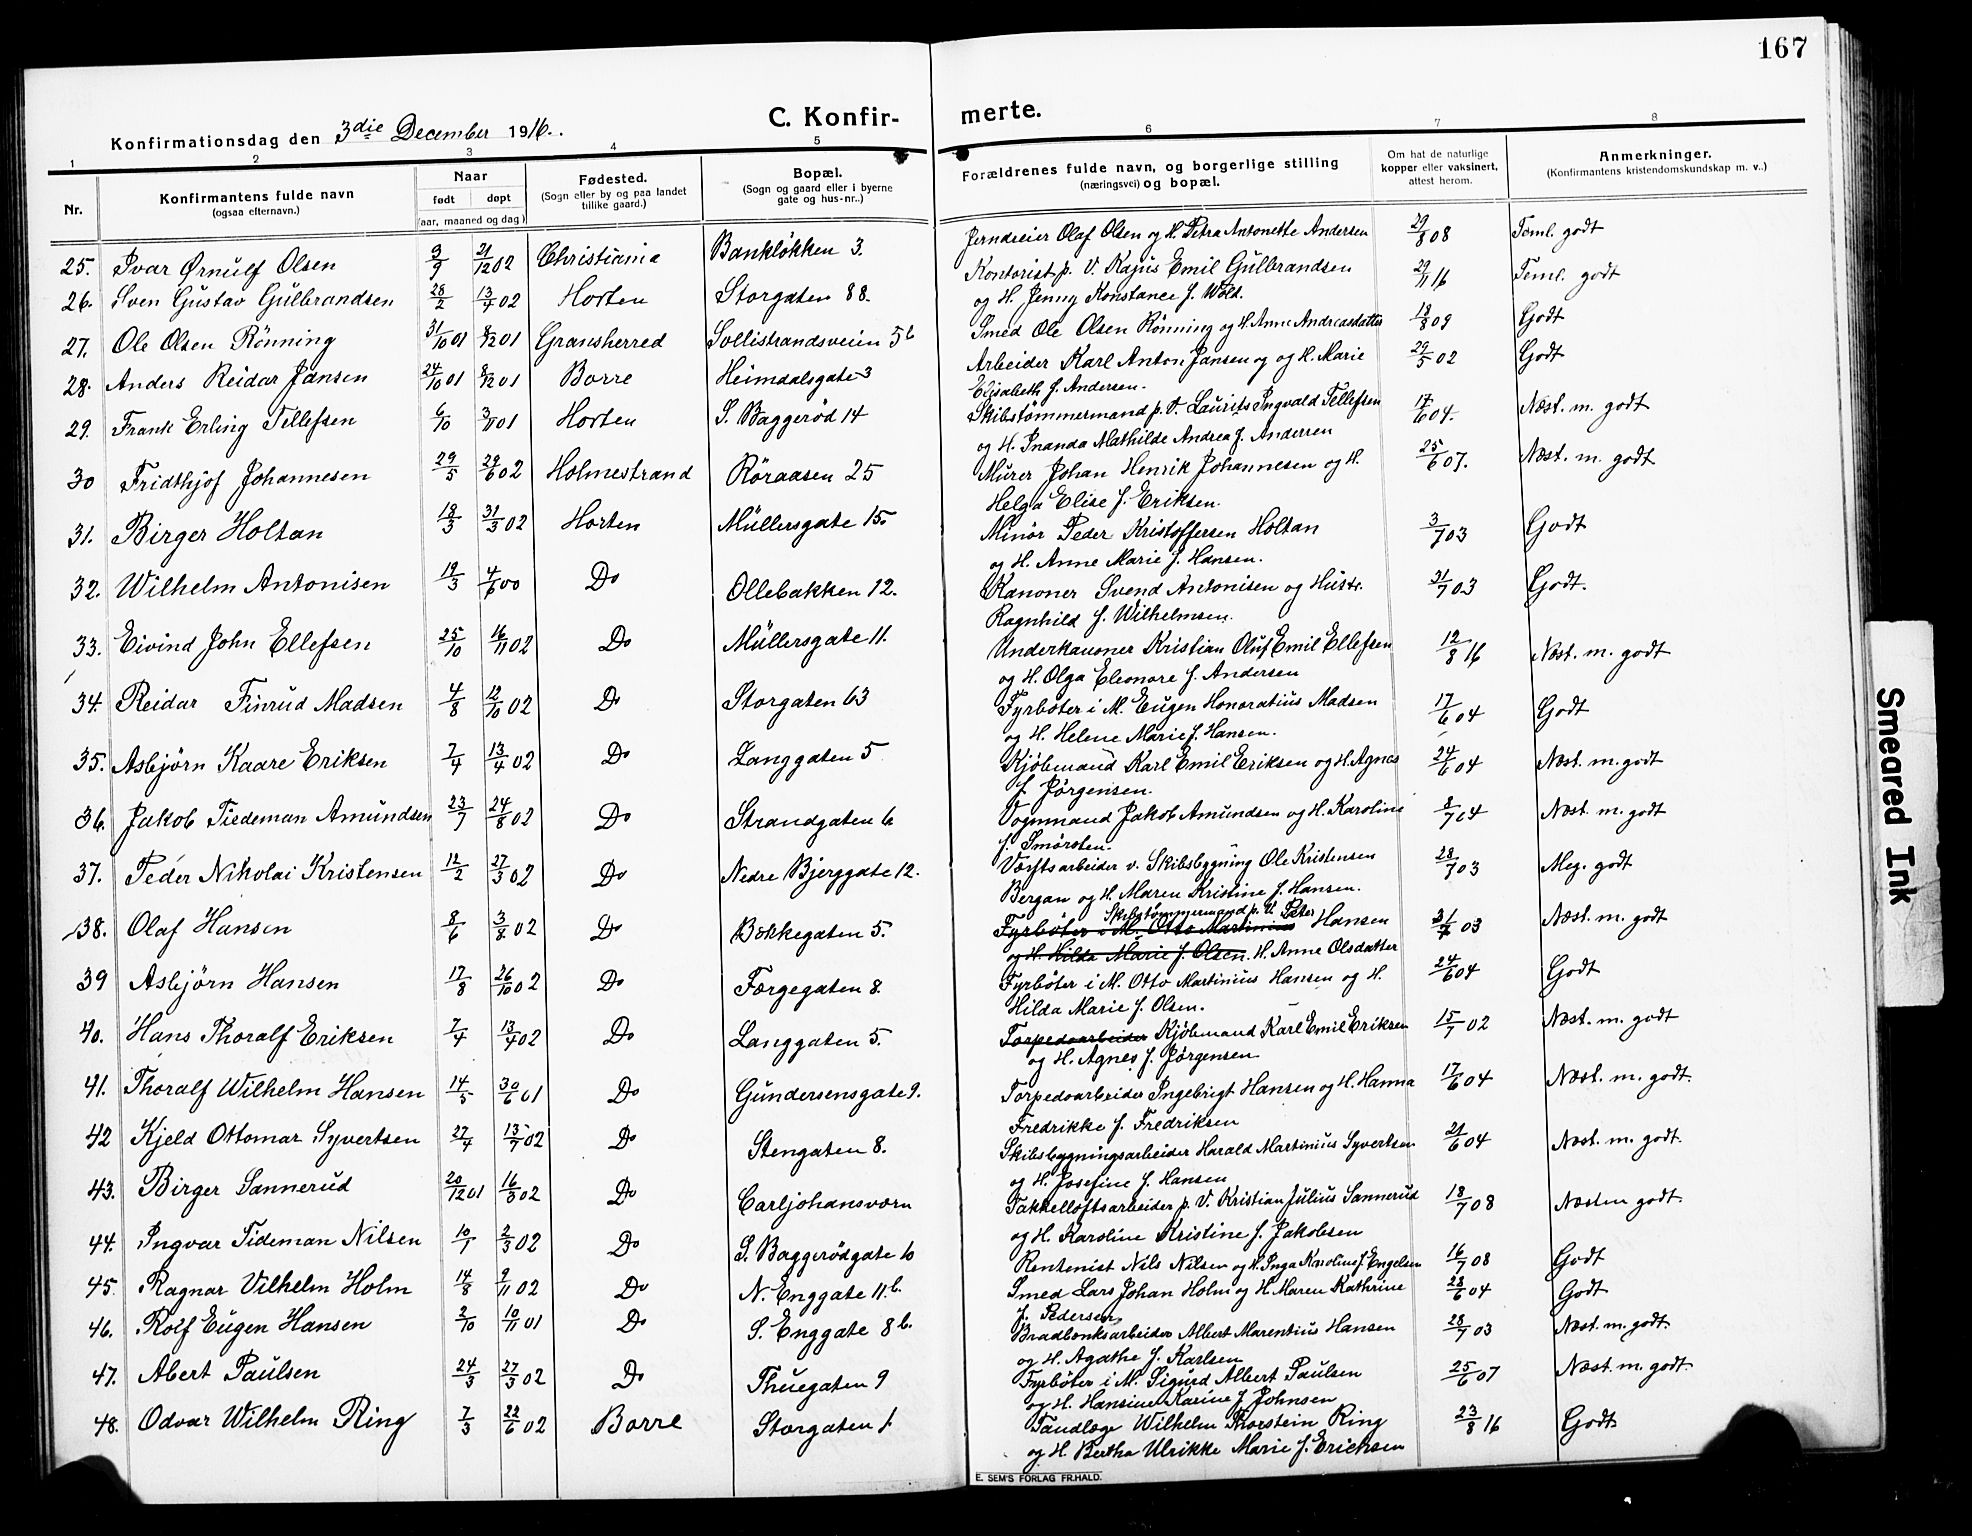 167
C. Konfir-
merte.
Konfirmationsdag den 3die December 1916.
1 2 3 4 5 6 7 8
Nr.
Konfirmantens fulde navn
(ogsaa efternavn.)
Naar
født døpt
(aar, maaned og dag)
Fødested.
(Sogn eller by og paa landet
tillike gaard.)
Bopæl.
(Sogn og gaard eller i byerne
gate og hus-nr..)
Forældrenes fulde navn, og borgerlige stilling
(næringsvei) og bopæl.
Om hat de naturlige
kopper eller vaksinert,
attest herom.
Anmerkninger.
(Konfirmantens kristendomskundskap m. v..)
25. Ivar Ørnulf Olsen 9/9 21/12 02 Christiania Bankløkken 3. Jerndreier Olaf Olsen og H. Petra Antonette Andersen 29/8 08 Teml. godt
26. Sven Gustav Gulbrandsen 28/2 13/4 02 Horten Storgaten 88. Kontorist p. V. Kajus Emil Gulbrandsen 29/11 16 Teml. godt
og H. Jenny Konstance f. Wold.
27. Ole Olsen Rønning 31/10 01 8/12 01 Gransherred Sollistrandsveien 5b Smed Ole Olsen Rønning og H. Anne Andreasdatter 18/8 09 Godt
28. Anders Reidar Jansen 24/10 01 8/12 01 Borre Heimdalsgate 3 Arbeider Karl Anton Jansen og og H. Marie 29/5 02 Godt
Elisabeth f. Andersen.
29. Frank Erling Tellefsen 6/10 3/11 01 Horten S. Baggerød 14 Skibstømmermand p. V. Laurits Ingvald Tellefsen 17/6 04. Næst. m. godt
og H. Inanda Mathilde Andrea f. Andersen
30 Fridthjof Johannesen 29/5 29/6 02 Holmestrand Røraasen 25 Murer Johan Henrik Johannesen og H. 25/6 07. Næst. m. godt
Helga Elise f. Eriksen.
31. Birger Holtan 18/3 31/3 02 Horten Müllersgate 15. Minør Peder Kristoffersen Holtan 3/7 03 Godt
og H. Anne Marie f. Hansen.
32. Wilhelm Antonisen 19/3 4/6 00 Do Ollebakken 12. Kanoner Svend Antonisen og Hustr. 31/7 03 Godt.
Ragnhild f. Wilhelmsen.
33. Eivind John Ellefsen 25/10 16/11 02 Do Müllersgate 11. Underkanoner Kristian Oluf Emil Ellefsen 12/8 16 Næst. m. godt
og H. Olga Eleonore f. Andersen
34. Reidar Finrud Madsen 4/8 12/10 02 Do Storgaten 63 Fyrbøter i M. Eugen Honoratius Madsen 17/6 04 Godt
og H. Helene Marie f. Hansen.
35. Asbjørn Kaare Eriksen 7/4 13/4 02 Do Langgaten 5 Kjøbmand Karl Emil Eriksen og H. Agnes 24/6 04 Næst. m. godt
f. Jørgensen.
36. Jakob Tiedeman Amundsen 23/7 24/8 02 Do Strandgaten 6 Vognmand Jakob Amundsen og H. Karoline 8/7 04 Næst. m. godt
f. Smørsten.
37. Peder Nikolai Kristensen 12/2 27/3 02 Do Nedre Bjerggate 12. Værftsarbeider v. Skibsbygning Ole Kristensen 28/7 03 Meg. godt
Bergan og H. Maren Kristine f. Hansen.
38. Olaf Hansen 8/6 3/8 02 Do Bekkegaten 5. Skibstømmermand p. V. Peter
Fyrbøter i M. Otto Martinius Hansen 31/7 03 Næst. m. godt
og H. Hilda Marie f. Olsen. H. Anne Olsdatter
39 Asbjørn Hansen 17/8 26/10 02 Do Færgegaten 8. Fyrbøter i M. Otto Martinius Hansen og H. 24/6 04 Godt
Hilda Marie f. Olsen.
40. Hans Thoralf Eriksen 7/4 13/4 02 Do Langgaten 5. Torpedoarbeider Kjøbmand Karl Emil Eriksen 15/7 02 Næst. m. godt
og H. Agnes f. Jørgensen
41. Thoralf Wilhelm Hansen 14/5 30/6 01 Do Gundersensgate 9. Torpedoarbeider Ingebrigt Hansen og H. Hanna 17/6 04 Næst. m. godt.
Fredrikke f. Fredriksen
42 Kjeld Ottomar Syvertsen 27/4 13/7 02 Do Stengaten 8. Skibsbygningsarbeider Harald Martinius Syvertsen 21/6 04 Næst. m. godt.
og H. Josefine f. Hansen
43. Birger Sannerud 20/12 01 16/3 02 Do Carljohansværn Takkelloftsarbeider p. V. Kristian Julius Sannerud 18/7 08 Næsten godt.
og H. Karoline Kristine f. Jakobsen
44. Ingvar Tideman Nilsen 10/1 2/3 02 Do S. Baggerødgate 10 Rentenist Nils Nilsen og H. Inga Karoline f. Engelsen 16/7 08 Godt
45. Ragnar Vilhelm Holm 14/8 9/11 02 Do N. Enggate 11.b. Smed Lars Johan Holm og H. Maren Kathrine 28/6 04 Godt
f. Pedersen
46. Rolf Eugen Hansen 2/10 10/11 01 Do S. Enggate 8b. Bradbænksarbeider Albert Marentius Hansen 28/7 03 Næst. m. godt.
og H. Agathe f. Karlsen
47. Abert Paulsen 24/3 27/3 02 Do Thuegaten 9 Fyrbøter i M. Sigurd Albert Paulsen 25/6 07 Næst. m. godt.
og H. Hansine Karine f. Johnsen
48. Odvar Wilhelm Ring 7/3 22/6 02 Borre Storgaten 1. Tandlæge Wilhelm Thorstein Ring 23/8 16 Godt.
og H. Bertha Ulrikke Marie f. Erichsen
E. SEM'S FORLAG FR.HALD.
Smeared Ink